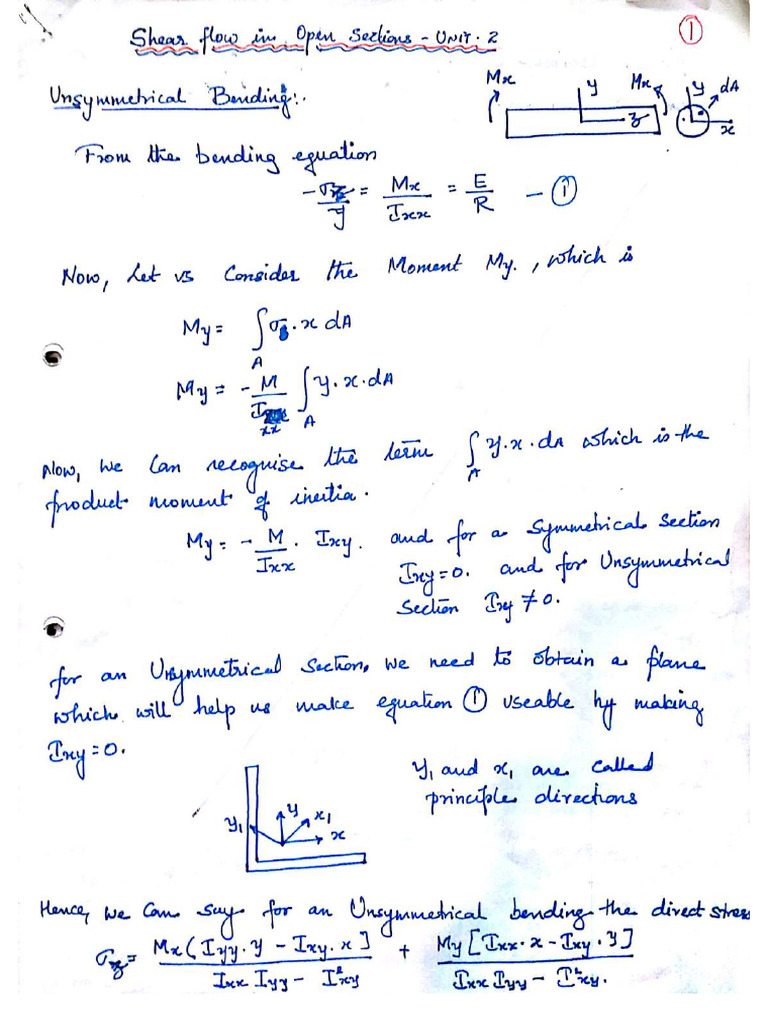 Shear flow in Open Sections - UNIT. 2
1
Unsymmetrical Bending:.
Mx y Mx y dA
z x
From the bending equation
-σz/y = Mx/Ixx = E/R — ①
Now, Let us Consider the Moment My., which is
My = ∫A σz.x dA
My = - M/Ixx ∫A y.x.dA
Now, we can recognise the term ∫A y.x.dA which is the
product moment of inertia.
My = - M/Ixx . Ixy. and for a Symmetrical Section
Ixy=0. and for Unsymmetrical
Section Ixy ≠ 0.
for an Unsymmetrical Section, we need to obtain a plane
which will help us make equation ① useable by making
Ixy=0.
y1 and x1 are called
principle directions
y1 y x1 x
Hence, we can say for an Unsymmetrical bending the direct stress
σz = Mx(Iyy.y - Ixy.x]/Ixx Iyy - I²xy + My[Ixx.x - Ixy.y]/Ixx Iyy - I²xy.